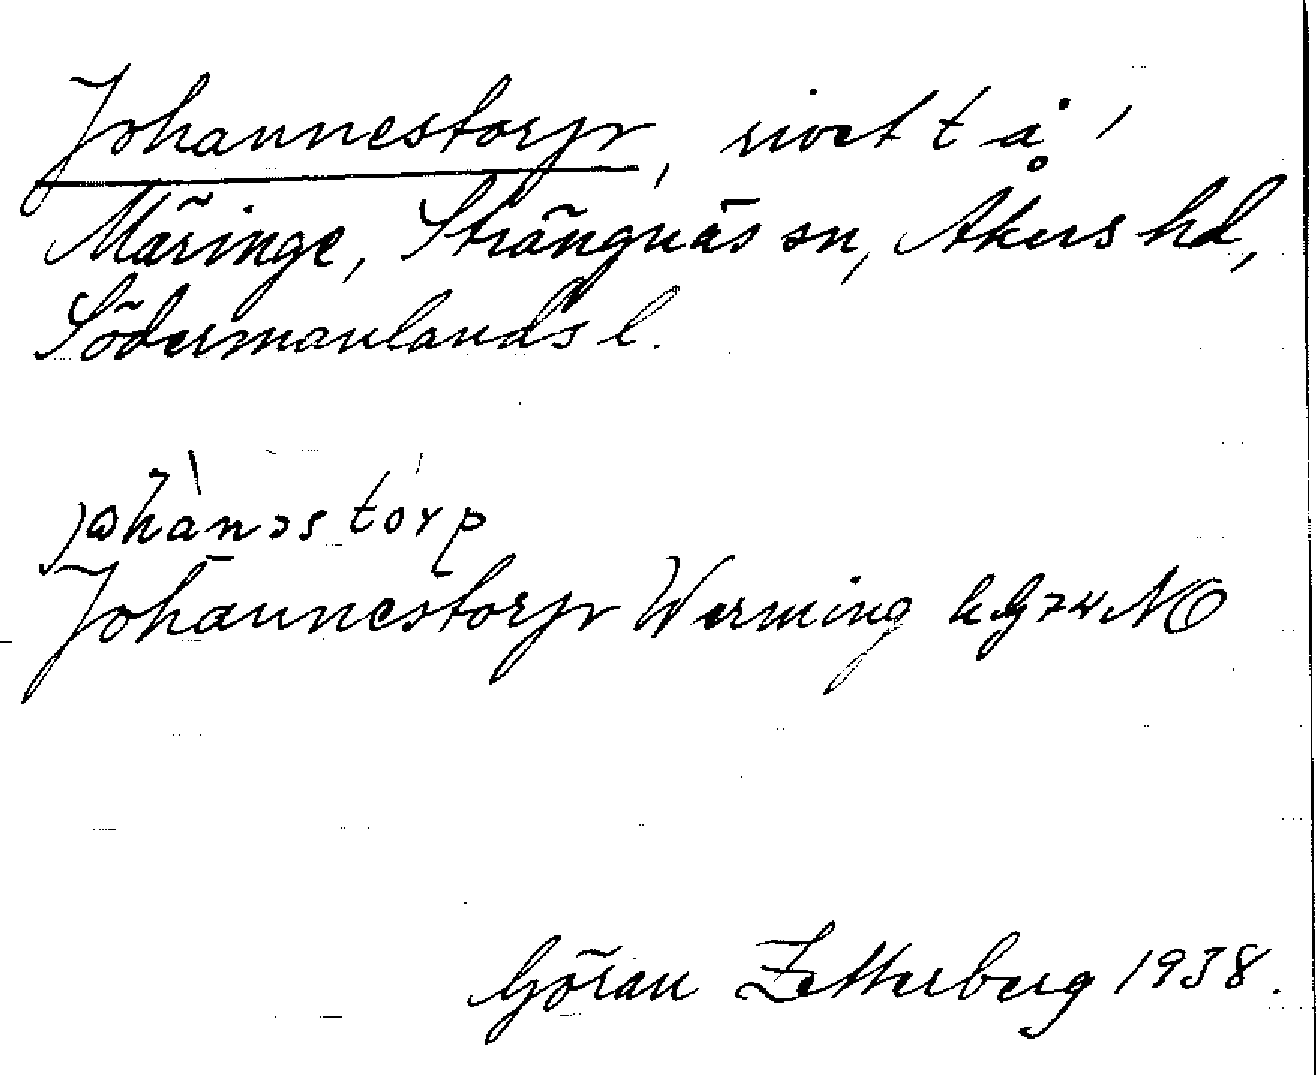 Johannestorp, rivet t å
Märinge, Strängnäs sn, Åkers hd,
Södermanlands l.
johànəs tórp
Johannestorp Werming NO
Göran Zetterberg 1938.